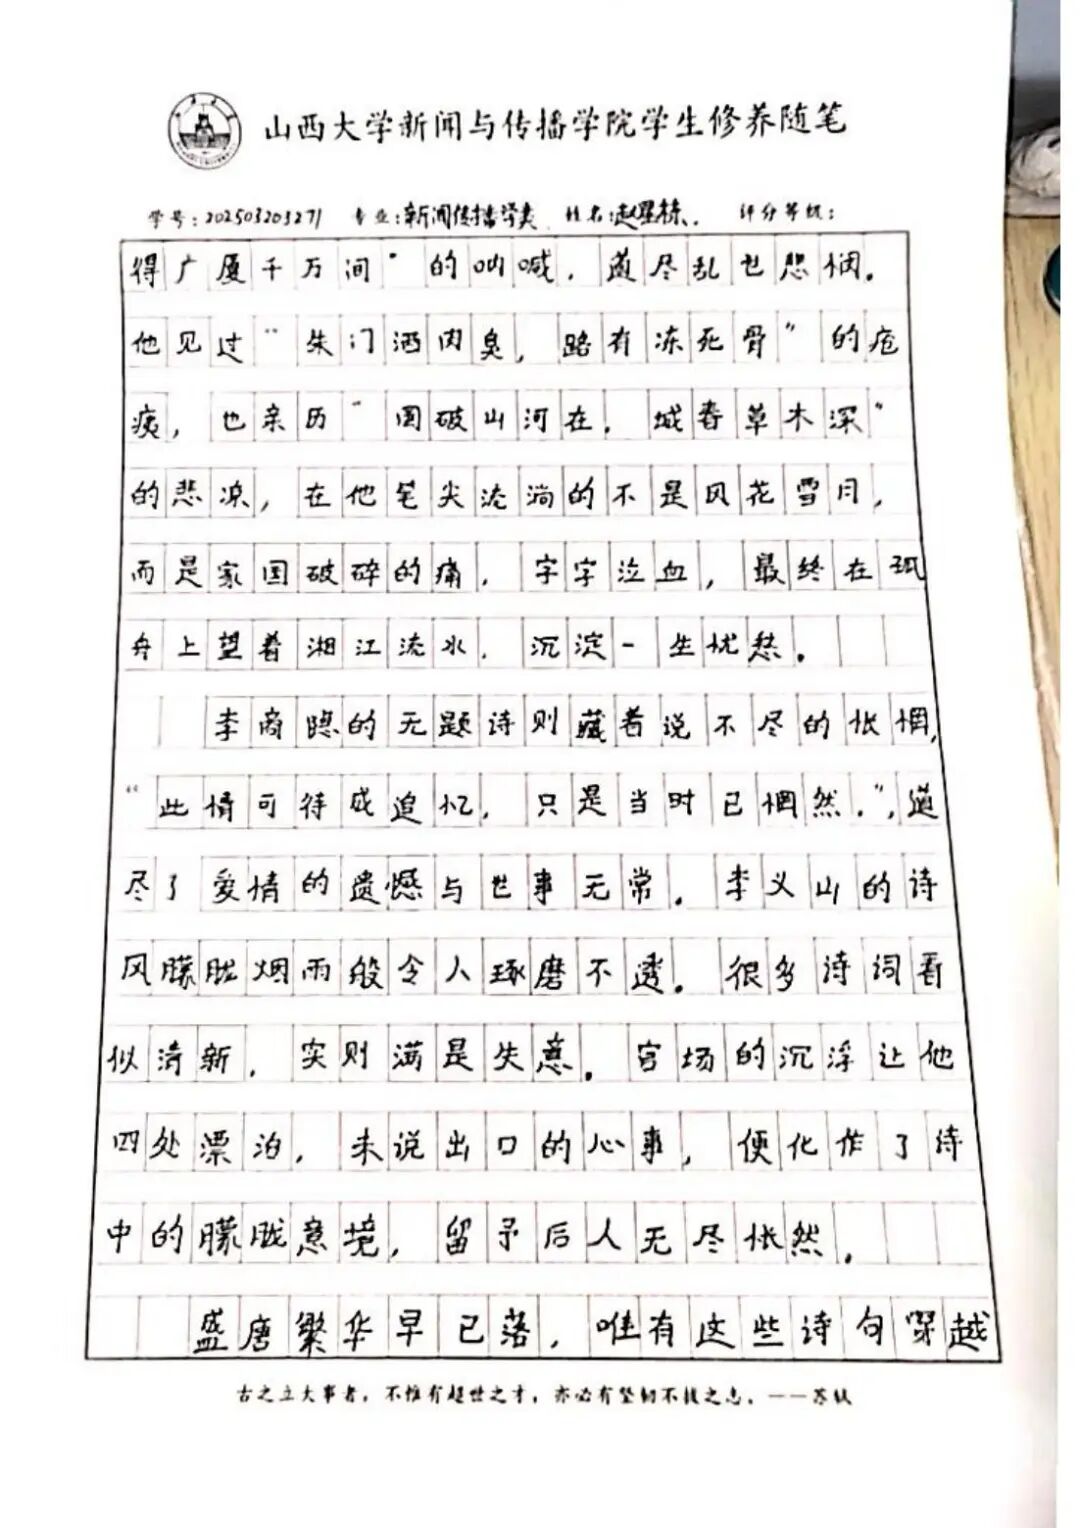 山西大学新闻与传播学院学生修养随笔
学号:202503203271 专业:新闻传播学类 姓名:赵星栋. 评分等级:
得广厦千万间"的叫喊，道尽乱世悲悯。
他见过"朱门酒肉臭，路有冻死骨"的疮
痍，也亲历"国破山河在，城春草木深"
的悲凉，在他笔尖流淌的不是风花雪月，
而是家国破碎的痛，字字泣血，最终在孤
舟上望着湘江流水，沉淀一生忧愁。
李商隐的无题诗则藏着说不尽的怅惘，
"此情可待成追忆，只是当时已惘然。"，道
尽了爱情的遗憾与世事无常。李义山的诗
风朦胧烟雨般令人琢磨不透。很多诗词看
似清新，实则满是失意。官场的沉浮让他
四处漂泊，未说出口的心事，便化作了诗
中的朦胧意境，留予后人无尽怅然。
盛唐繁华早已落，唯有这些诗句穿越
古之立大事者，不惟有超世之才，亦必有坚韧不拔之志。——苏轼